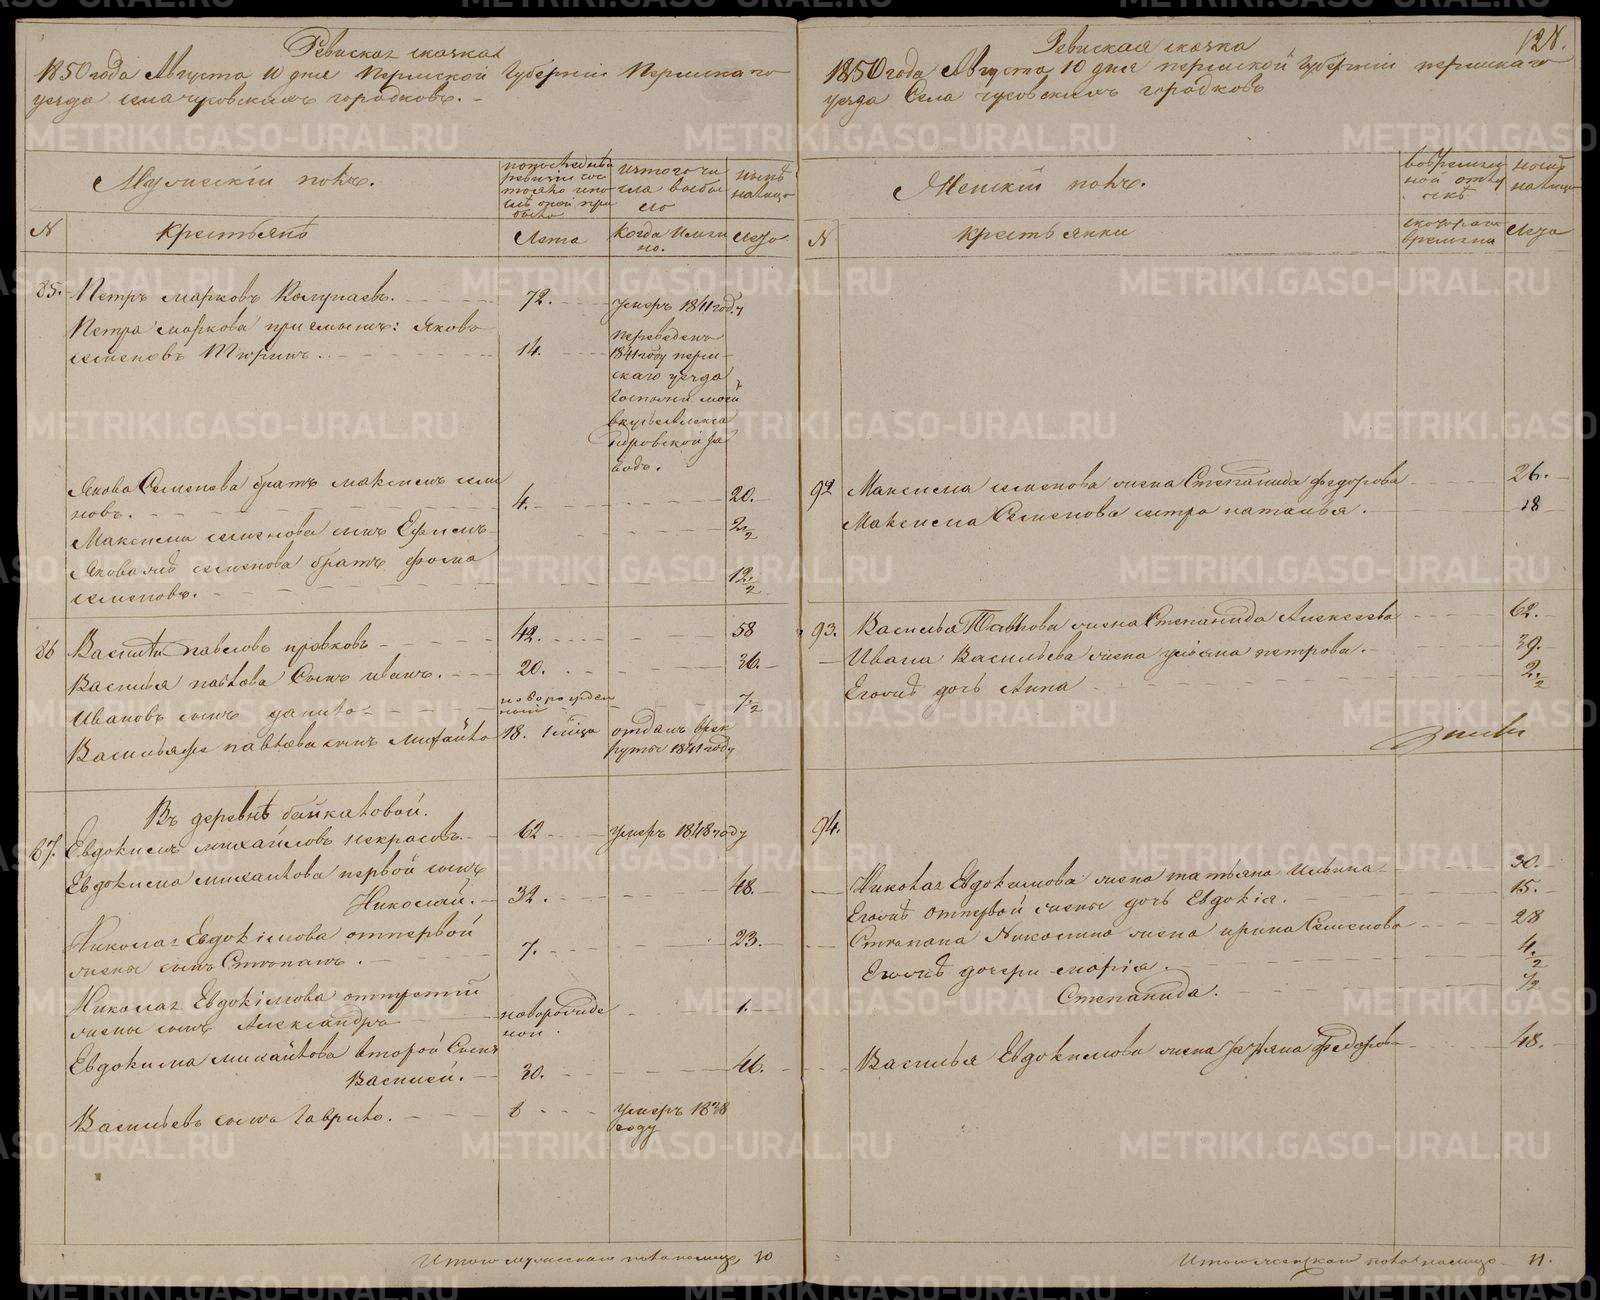 Ревиская сказка
1850 года Августа 10 дня Пермской Губернии Пермскаго
уезда села чусовскихъ городковъ.
Мужескій полъ.
попоследней ревизіи состояло ипослѣ оной прибыло
изтого числа выбыло
нынѣ налицо
N
Крестьянъ
Лета
Когда именно.
Лета
85.
Петръ марковъ Колупаевъ.
72.
умеръ 1841 году
Петра маркова приемышъ: яковъ
семеновъ Тюринъ.
14.
переведенъ
1841 году перм-
скаго уезда
Госпожи моей
александровской за
водъ.
Якова Семенова братъ максимъ семе
новъ.
4.
20.
Максима семенова сынъ Ефимъ
2 1/2
Якова же семенова братъ фома
семеновъ.
12 1/2
86
Василій павловъ правковъ
42.
58
Василья павлова Сынъ иванъ.
20.
36.
Ивановъ сынъ данило
новорожден
ный
7 1/2
Василья же павлова сынъ михайло
18.
отданъ врек
руты 1841 году
Въ деревнѣ байкаловой.
87.
Евдокимъ михайловъ некрасовъ.
62
умеръ 1848 году
Евдокима михайлова первой сынъ
Николай.
32.
48.
Николая Евдокімова отпервой
жены сынъ Степанъ.
7.
23.
Николая Евдокімова
жены сынъ Александръ
новорожде
ной
1.
Евдокима михайлова второй Сынъ
Василей.
30.
46.
Васильевъ сынъ Гаврило.
8
умеръ 1838
году
Итого мужескаго пола налицо 10
128.
Ревиская сказка
1850 года Августа 10 дня пермской Губерніи пермскаго
уезда Села чусовскихъ городковъ
Женскій полъ.
вовременной отлучкѣ
ныне налицо
N
крестьянки
скотораго времени
Лета
92
Максима семенова жена Степанида федорова
26.
Максима Семенова сестра наталья.
18
93.
Василья Павлова жена Степанида Алексеева
62.
Ивана Васильева жена ульяна петрова.
39.
Егожъ дочь Анна
2 1/2
94.
Николая Евдокимова жена татьяна ильина
30.
Егожъ отпервой жены дочь Евдокія.
15.
Степана Николаева жена ирина Семенова
28
Егожъ дочери марія.
4 1/2
Степанида.
1/2
Василья Евдокимова жена федорова
48.
Итого женскаго пола налицо 11.
METRIKI.GASO-URAL.RU